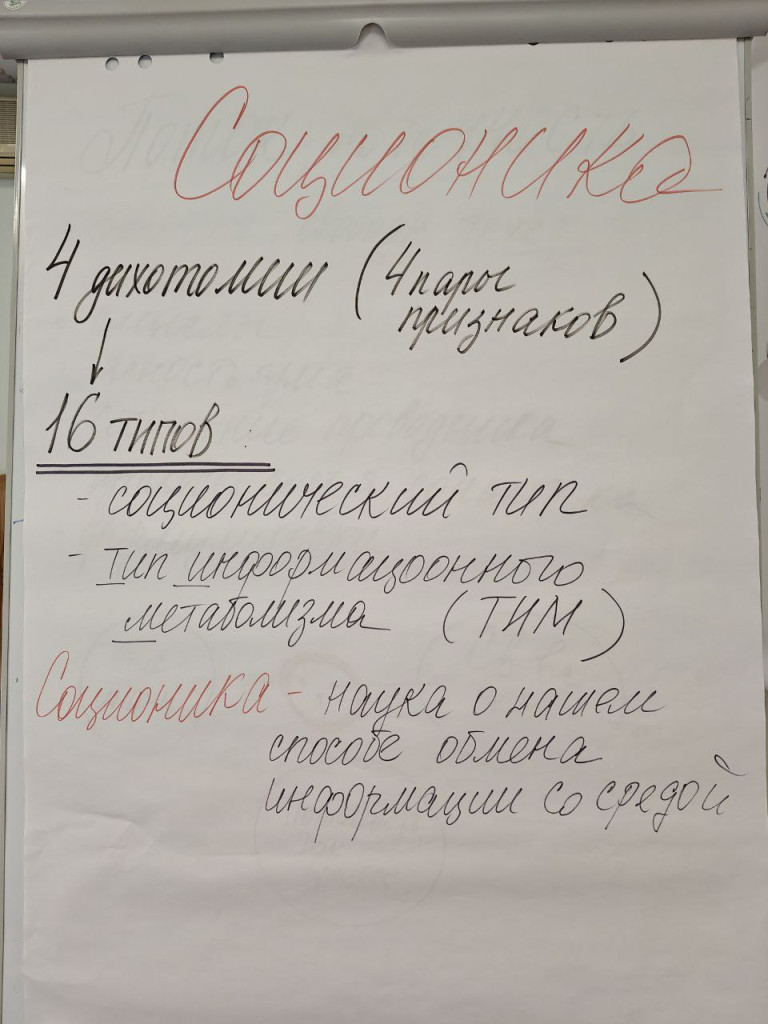 Соционика
4 дихотомии (4 пары
признаков)
16 типов :
- соционический тип
- Тип информационного
метаболизма (ТИМ)
Соционика - наука о нашем
способе обмена
информации со средой